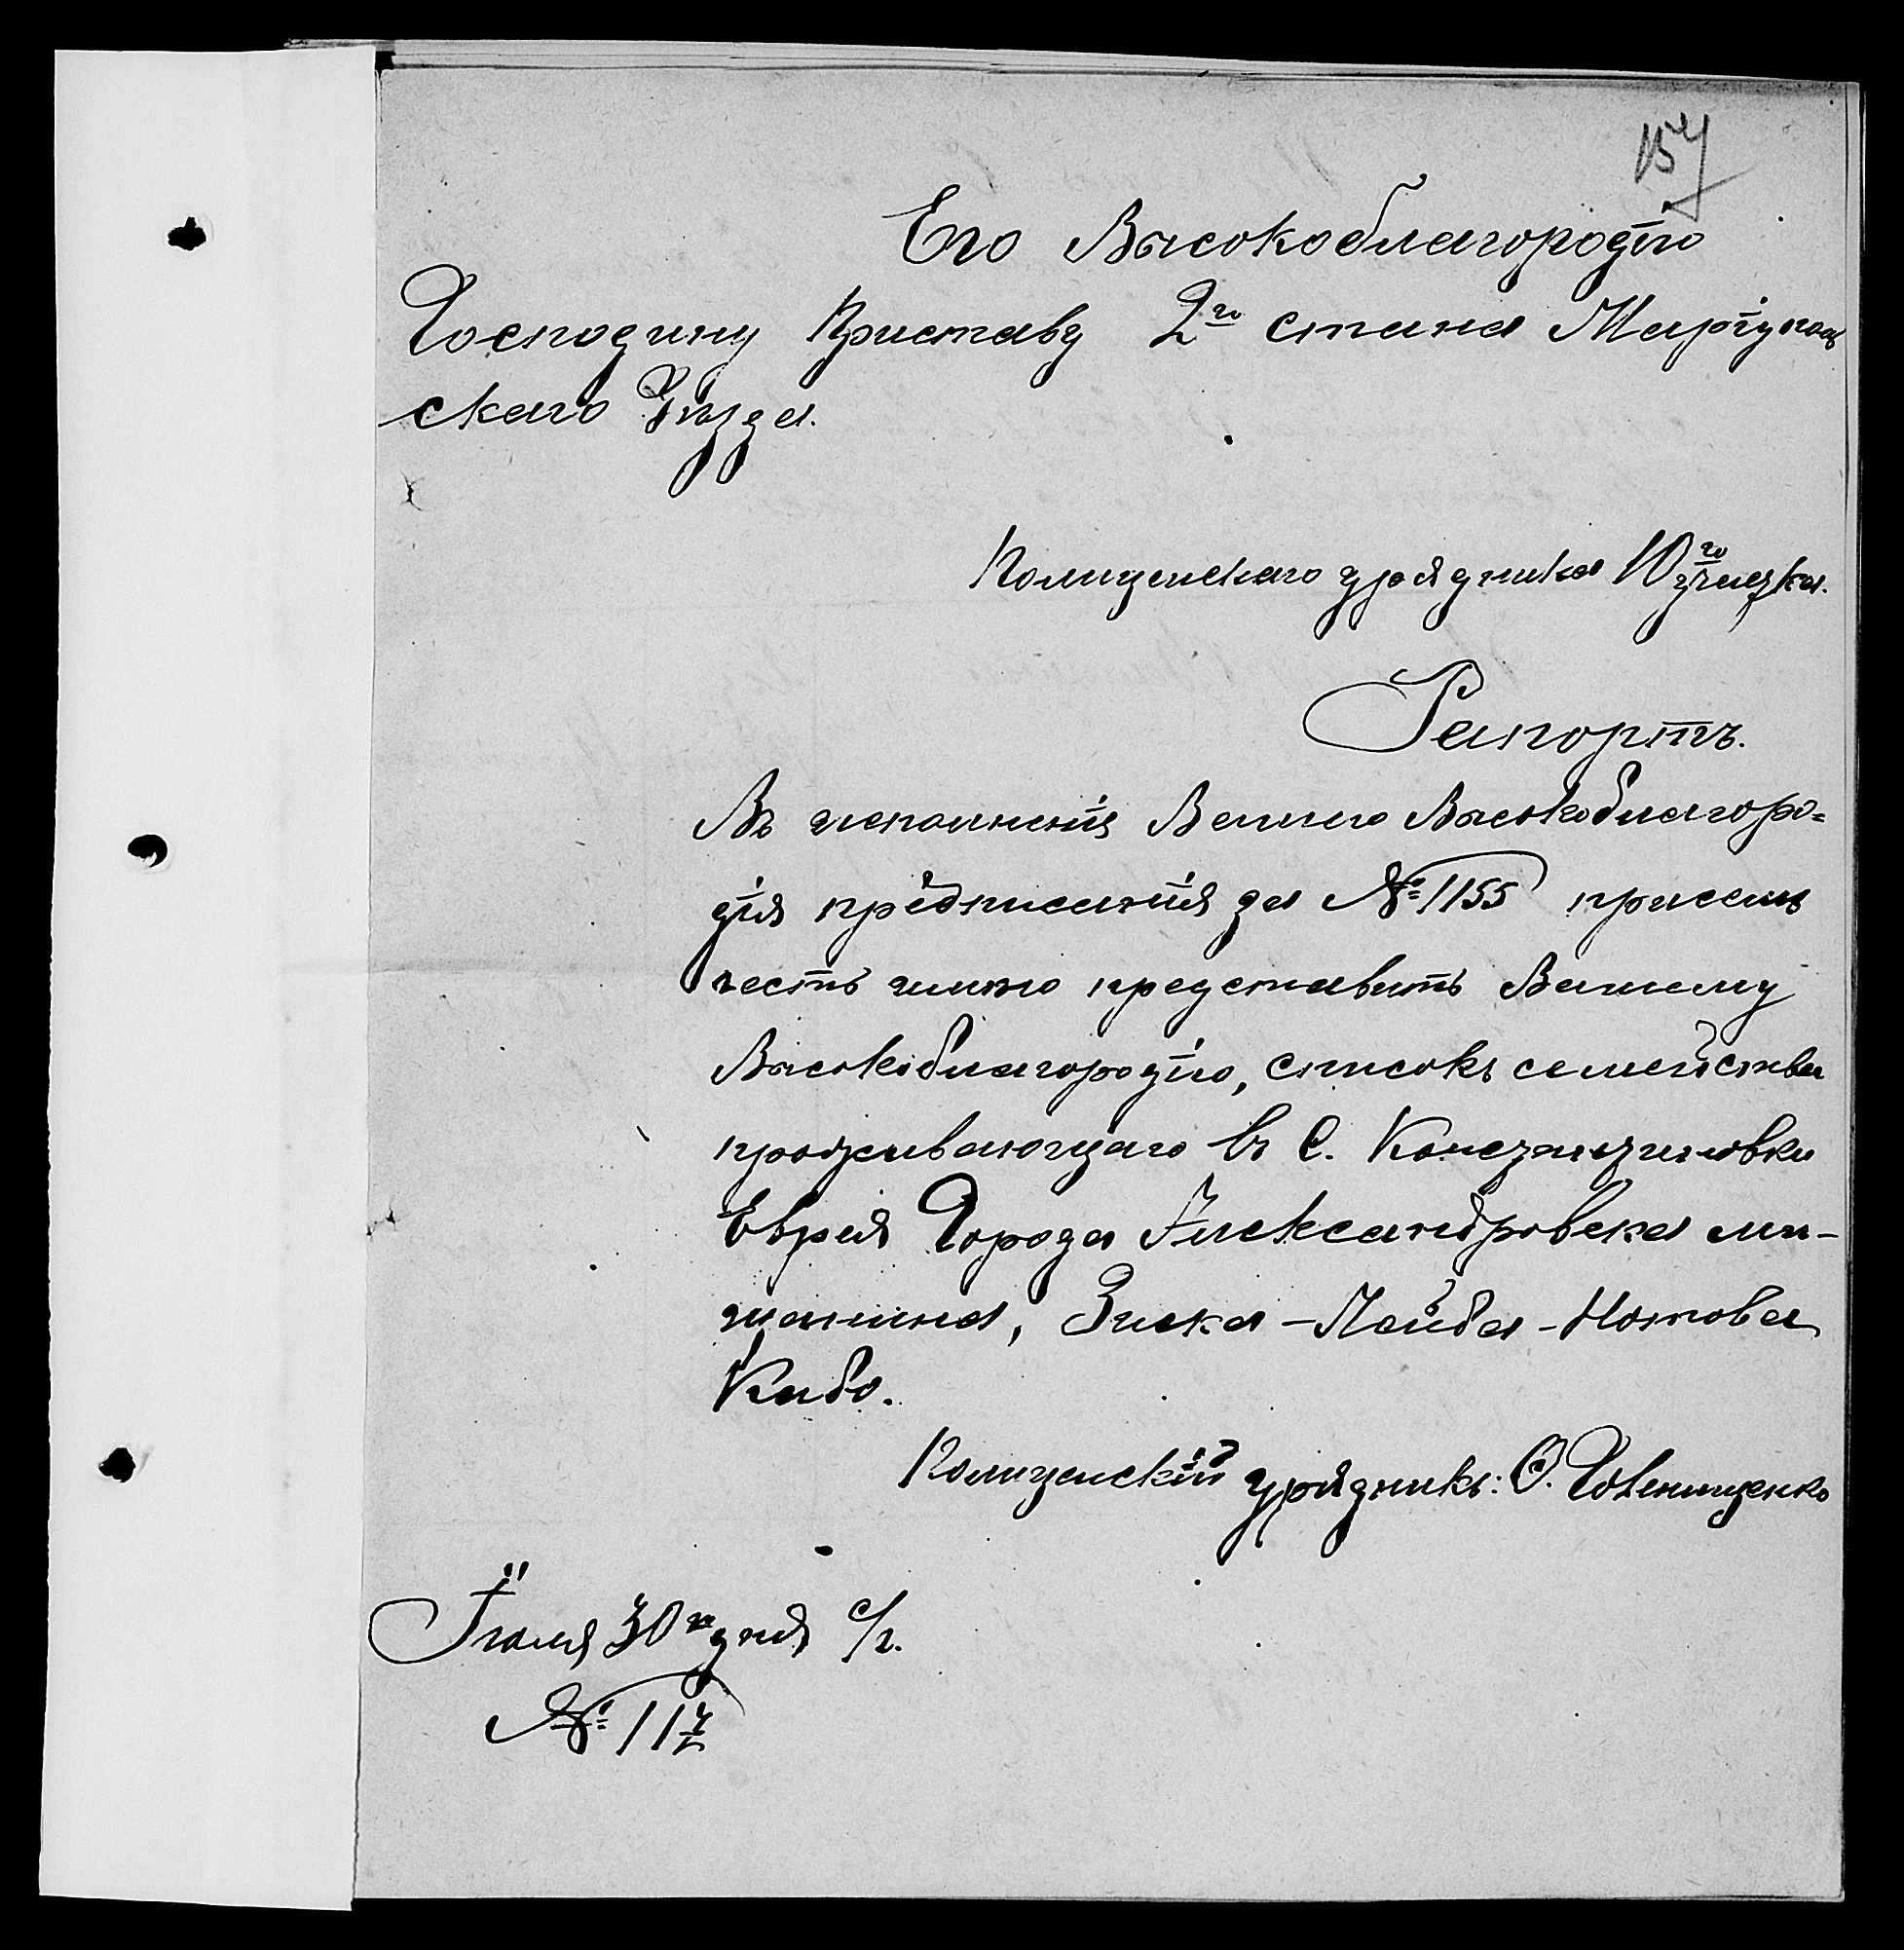 157
Его Высокоблагородію
Господину Приставу 2го стана Маріуполь
скаго Уѣзда.
Полицейскаго урядника 10го участка.
Рапортъ.
Въ исполненія Вашего Высокоблагоро=
дія предписанія за №1155 при семъ
честь имѣю представить Вашему
Высокоблагородію, списокъ семейства
проживающаго въ С. Константиновки
Еврея Города Александровска мѣ-
щанина, Зиска-Лейба-Нотова
Кабо.
Полицейскій урядникъ: О.
Іюля 30го дня с/г.
№ 117